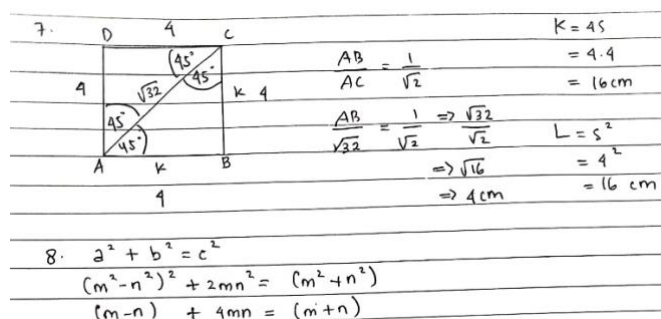 7.
D 4 C
45°
45°
4
√32
k 4
45°
45°
A k B
4
AB/AC = 1/√2
AB/√32 = 1/√2 => √32/√2
=> √16
=> 4 cm
K = 4S
= 4.4
= 16 cm
L = s²
= 4²
= 16 cm
8. a² + b² = c²
(m²-n²)² + 2mn² = (m²+n²)
(m-n) + 4mn = (m+n)